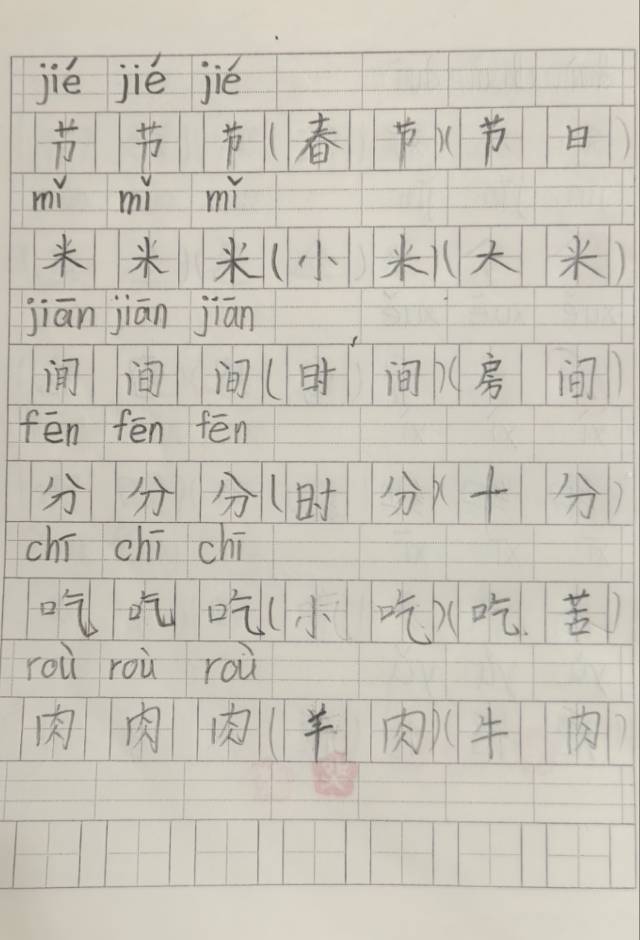 jié jié jié
节 节 节 ( 春 节 )( 节 日 )
mǐ mǐ mǐ
米 米 米 ( 小 米 )( 大 米 )
jiān jiān jiān
间 间 间 ( 时 间 )( 房 间 )
fēn fēn fēn
分 分 分 ( 时 分 )( 十 分 )
chī chī chī
吃 吃 吃 ( 小 吃 )( 吃 苦 )
roù roù roù
肉 肉 肉 ( 羊 肉 )( 牛 肉 )